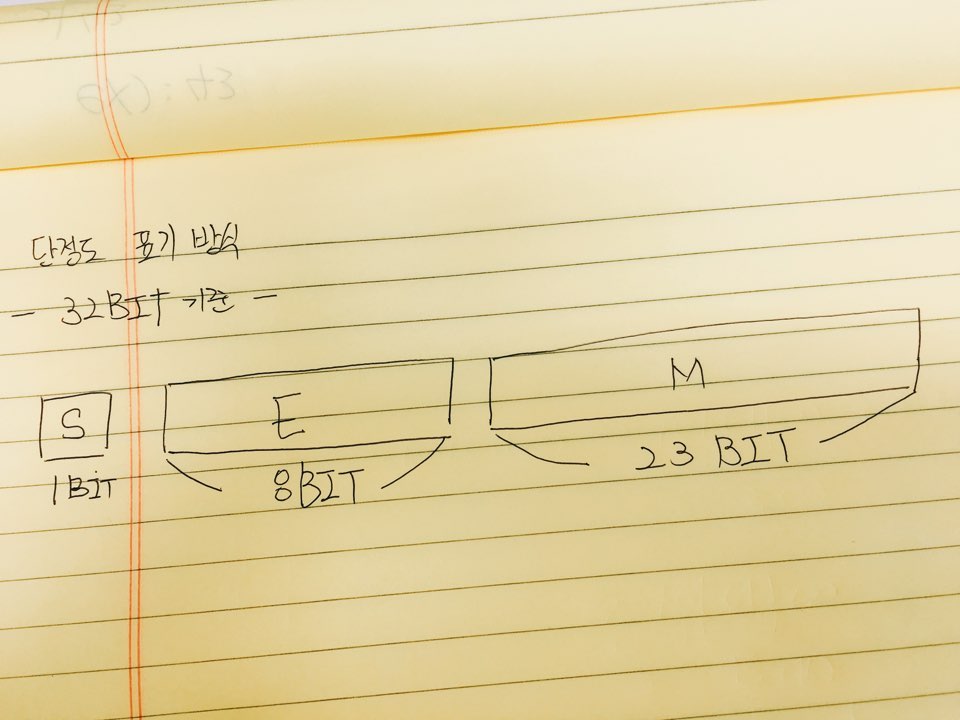 단정도 표기 방식
- 32BIT 기준 -
S E M
1BIT 8BIT 23 BIT